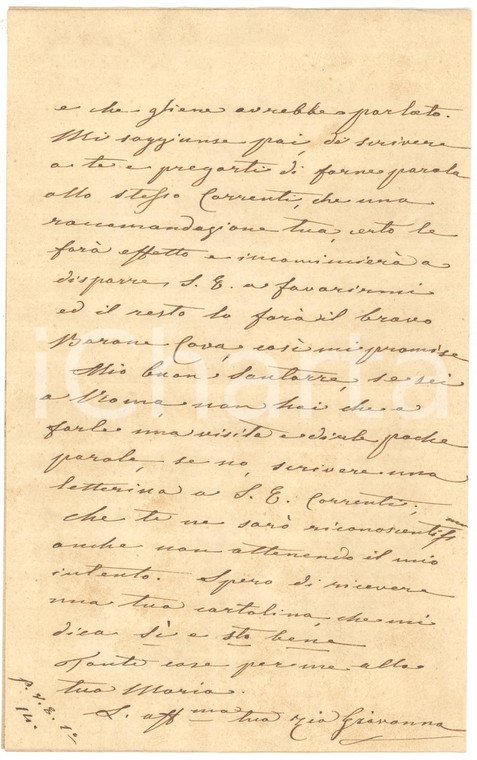 e che gliene avrebbe parlato.
Mi soggiunse poi, di scrivere
a te e pregarti di farne parola
allo stesso Correnti, che una
raccomandazione tua, certo le
farà effetto e incomincierà a
disporre S. E. a favorirmi
ed il resto lo farà il bravo
Barone Cova, così mi promise
Mio buon Santorre, se sei
a Roma, non hai che a
farle una visita e dirle poche
parole, se no, scrivere una
letterina a S. E. Correnti,
che te ne sarò riconoscentissma
anche non ottenendo il mio
intento. Spero di ricevere
una tua cartolina che mi
dica sì e sto bene
Tante cose per me alla
tua Maria.
L' affma tua zia Giovanna
iCharta